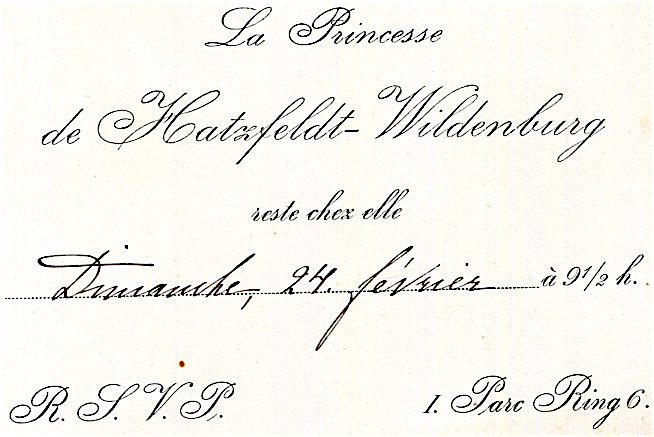 La Princesse
de Hatzfeldt-Wildenburg
reste chez elle
Dimanche, 24. février à 9 1/2 h.
R. S. V. P.
I. Parc Ring 6.